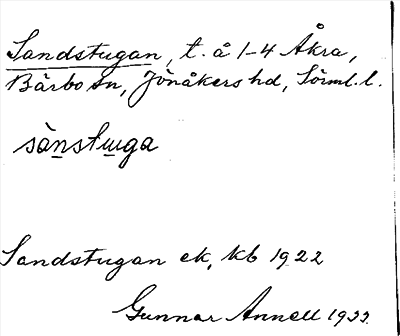 Sandstugan, t. å 1-4 Åkra,
Bärbo sn, Jönåkers hd, Sörml. l.
sànstuga
Sandstugan ek, kb 1922
Gunnar Annell 1933.